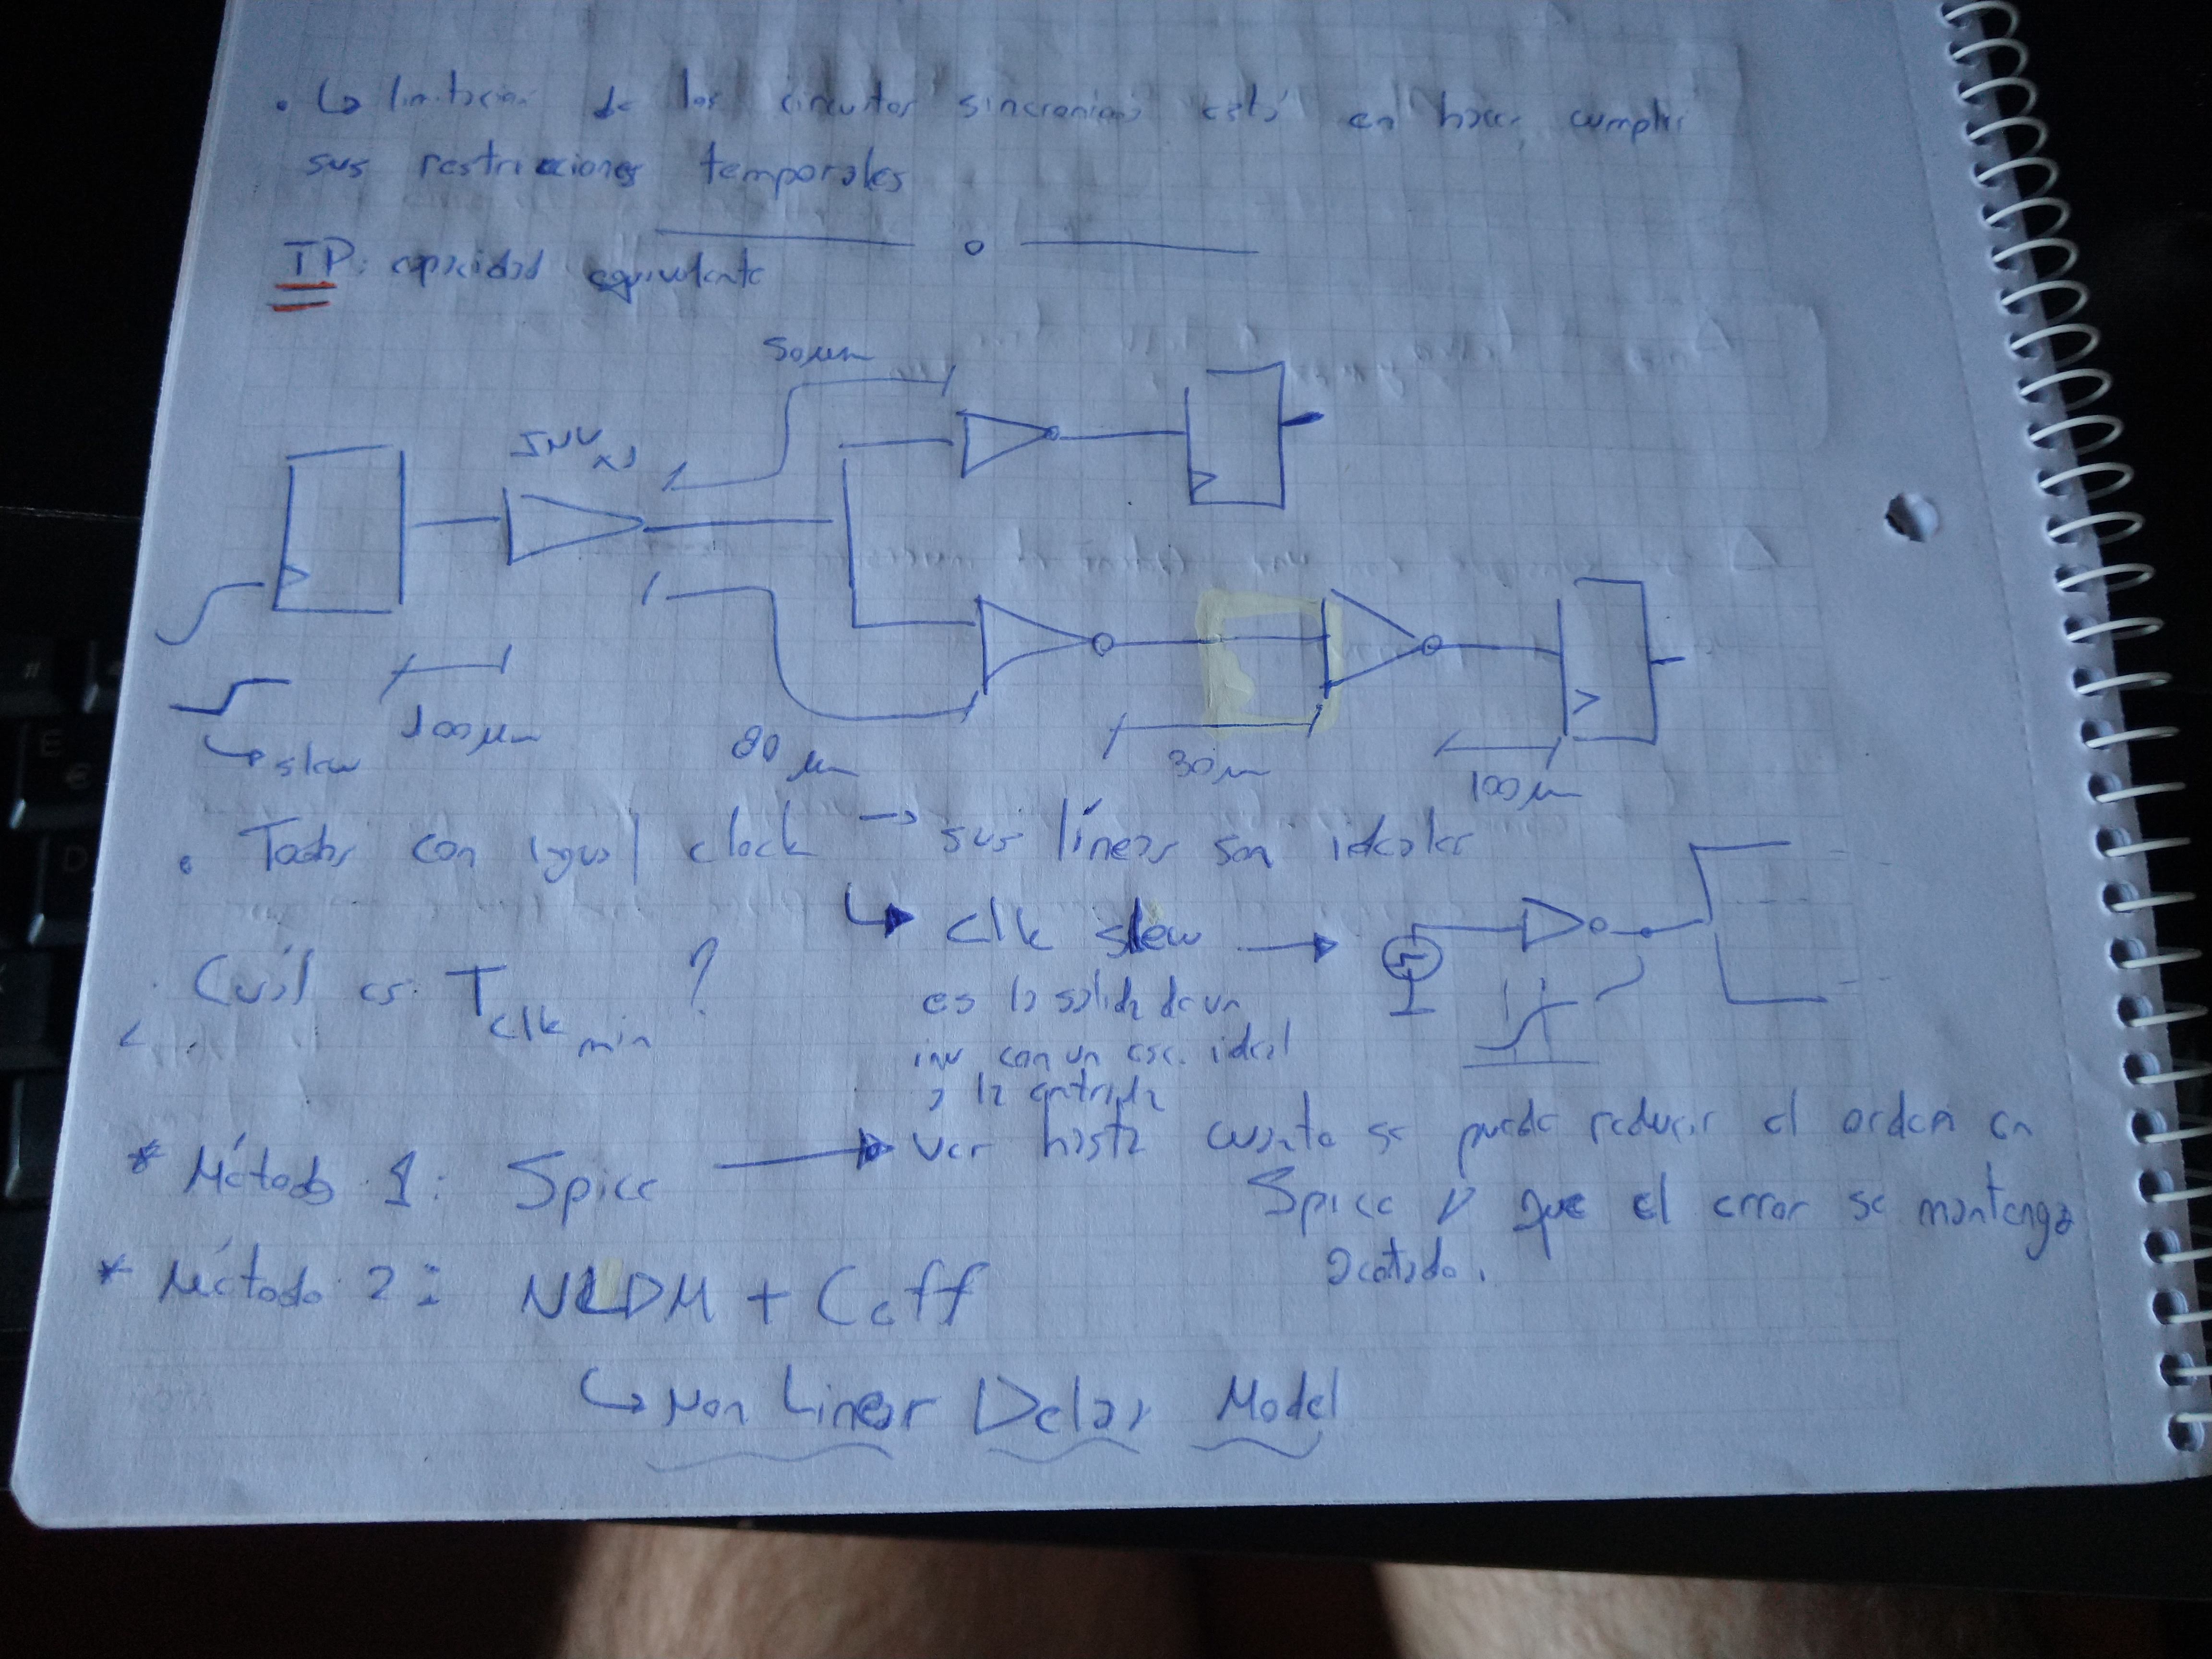 • ↳ limitación de los circuitos sincronicos está en hacer cumplir
sus restricciones temporales
TP: capacidad equivalente
50 µm
INV x1
100 µm
↳ slew
80 µm
30 µm
100 µm
• Todos con igual clock → sus líneas son ideales
↳ clk slew →
es la salida de un
inv con un esc. ideal
a la entrada
Cuál es T clk min ?
* Método 1: Spice → ver hasta cuanto se puede reducir el orden en
Spice y que el error se mantenga
acotado.
* Método 2: NLDM + Ceff
↳ Non Linear Delay Model